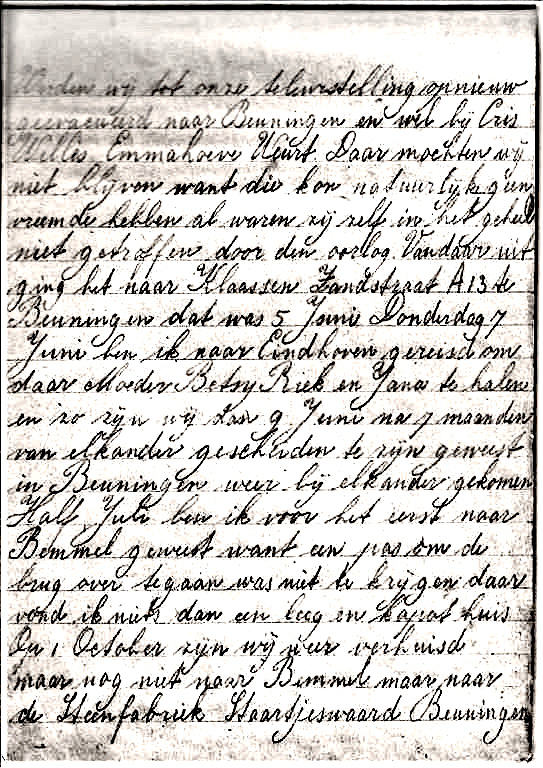 Werden wij tot onze teleurstelling opnieuw
geevacueerd naar Beuningen en wel bij Cris
Willis Emmahoeve Weurt. Daar mochten wij
niet blijven want die kon natuurlijk geen
vreemde hebben al waren zij zelf in het geheel
niet getroffen door den oorlog. Vandaar uit
ging het naar Klaassen Zandstraat A 13 te
Beuningen dat was 5 Juni Donderdag 7
Juni ben ik naar Eindhoven gereisd om
daar Moeder Betsy Riek en Jana te halen
en zo zijn wij dan 9 Juni na 7 maanden
van elkander gescheiden te zijn geweest
in Beuningen weer bij elkander gekomen
Half Juli ben ik voor het eerst naar
Bemmel geweest want een pas om de
brug over tegaan was niet te krijgen daar
vond ik niets dan een leeg en kapot huis
Op 1 October zijn wij weer verhuisd
maar nog niet naar Bemmel maar naar
de Steenfabriek Staartjeswaard Beuningen